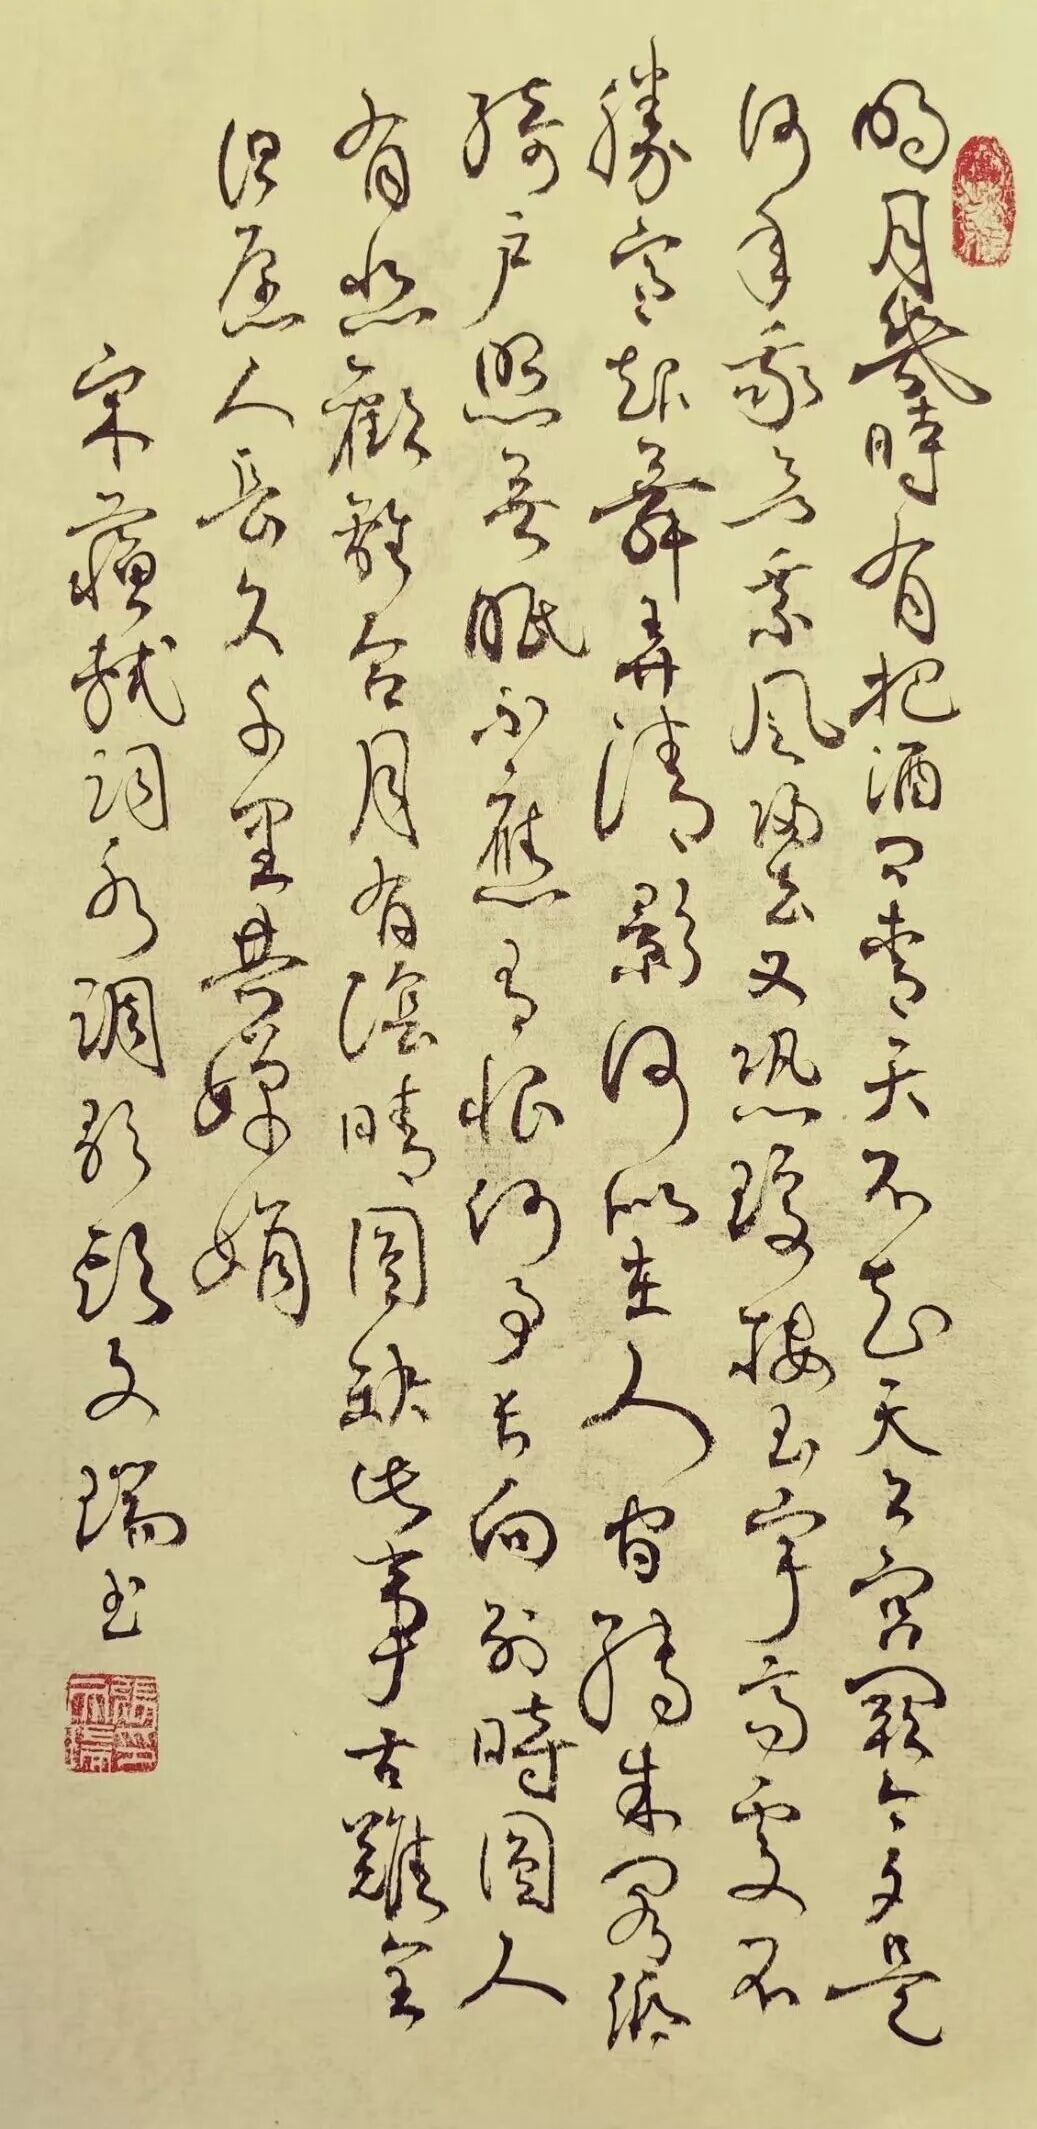 明月幾時有把酒問青天不知天上宮闕今夕是
何年我欲乘風歸去又恐瓊樓玉宇高處不
勝寒起舞弄清影何似在人間轉朱閣低
綺戶照無眠不應有恨何事長向別時圓人
有悲歡離合月有陰晴圓缺此事古難全
但愿人長久千里共嬋娟
宋蘇軾詞水調歌頭文瑞書